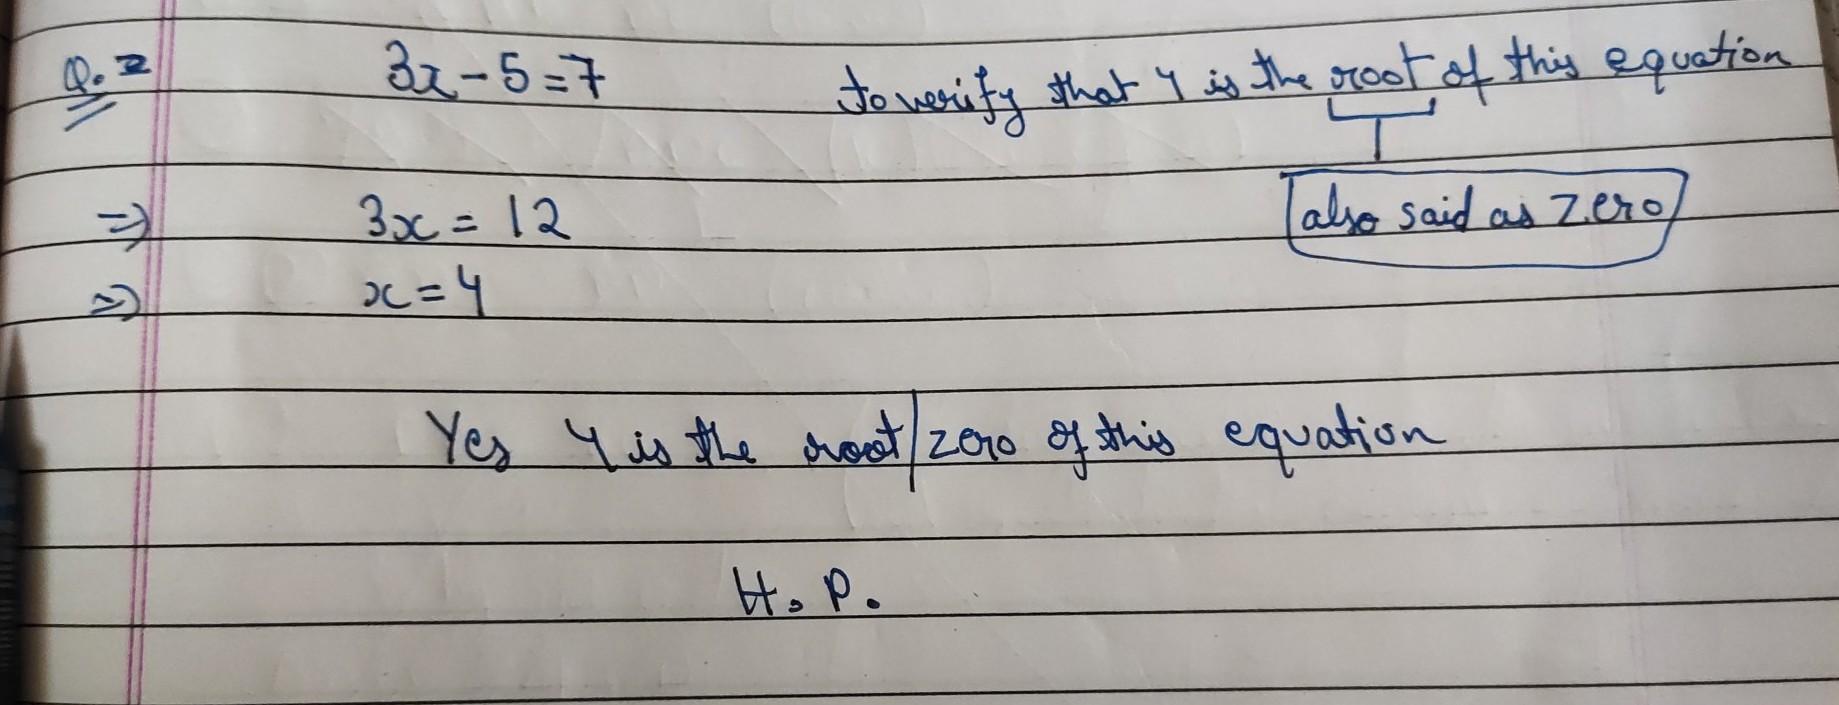 Q.2 3x - 5 = 7 to verify that 4 is the root of this equation
also said as zero
⇒ 3x = 12
⇒ x = 4
Yes 4 is the root/zero of this equation
H.P.